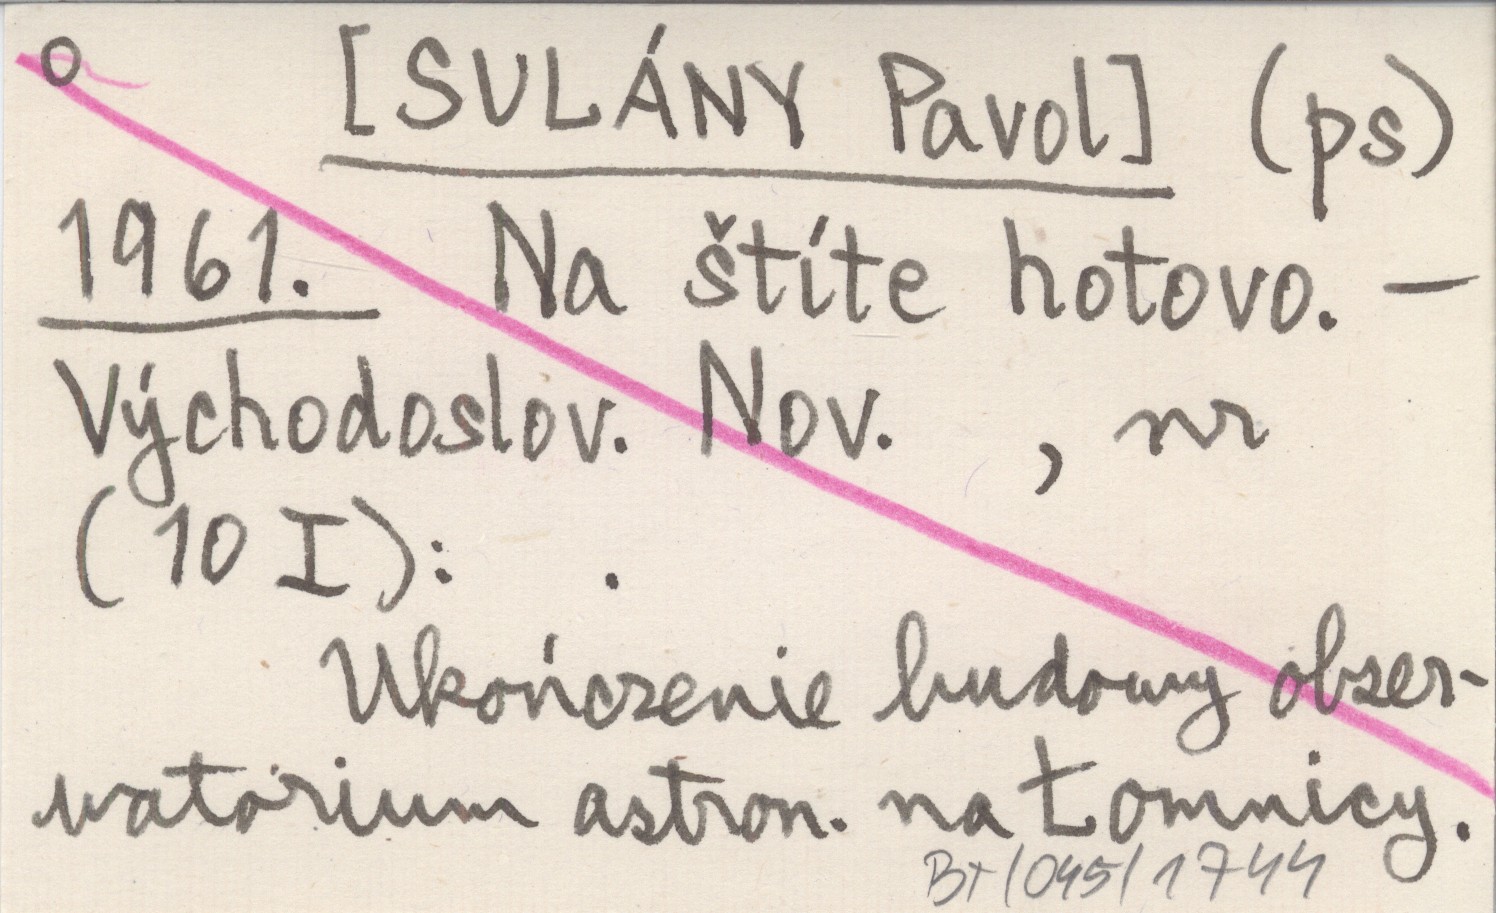 o [SULÁNY Pavol] (ps)
1961. Na štíte hotovo. —
Východoslov. Nov. , nr
(10 I): .
Ukończenie budowy obser-
watorium astron. na Łomnicy.
BT/045/1744